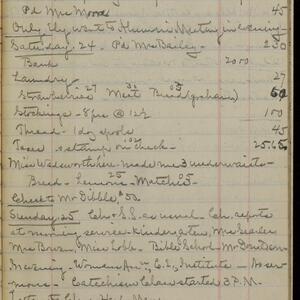 Pd Mrs Wood 45
Only Chy went to Alumni Meeting in evening -
Saturday, 24. Pd Mrs Bailey - 250
Bank 2000
Laundry 27
Strawberries 27 Meat 31 Bread (graham) 05
Stockings - 8 prs @ 12½ 100
Thread - 1 doz spools 45
Taxes on check - 25.65
Miss Wadsworth here made me 3 underwaists -
Bread - Lemons - Matches 05
Check to Mr Dibble, $50.
Sunday, 25 Ch. & S.S. as usual - Ch. reports
at morning service - kindergarten, Mrs
Mrs Bowen, Miss Cobb. Bible School - Mr Davidson
Evening - Woman's C.E., Institute - No ser-
mons - Catechism Class started 3 P.M.